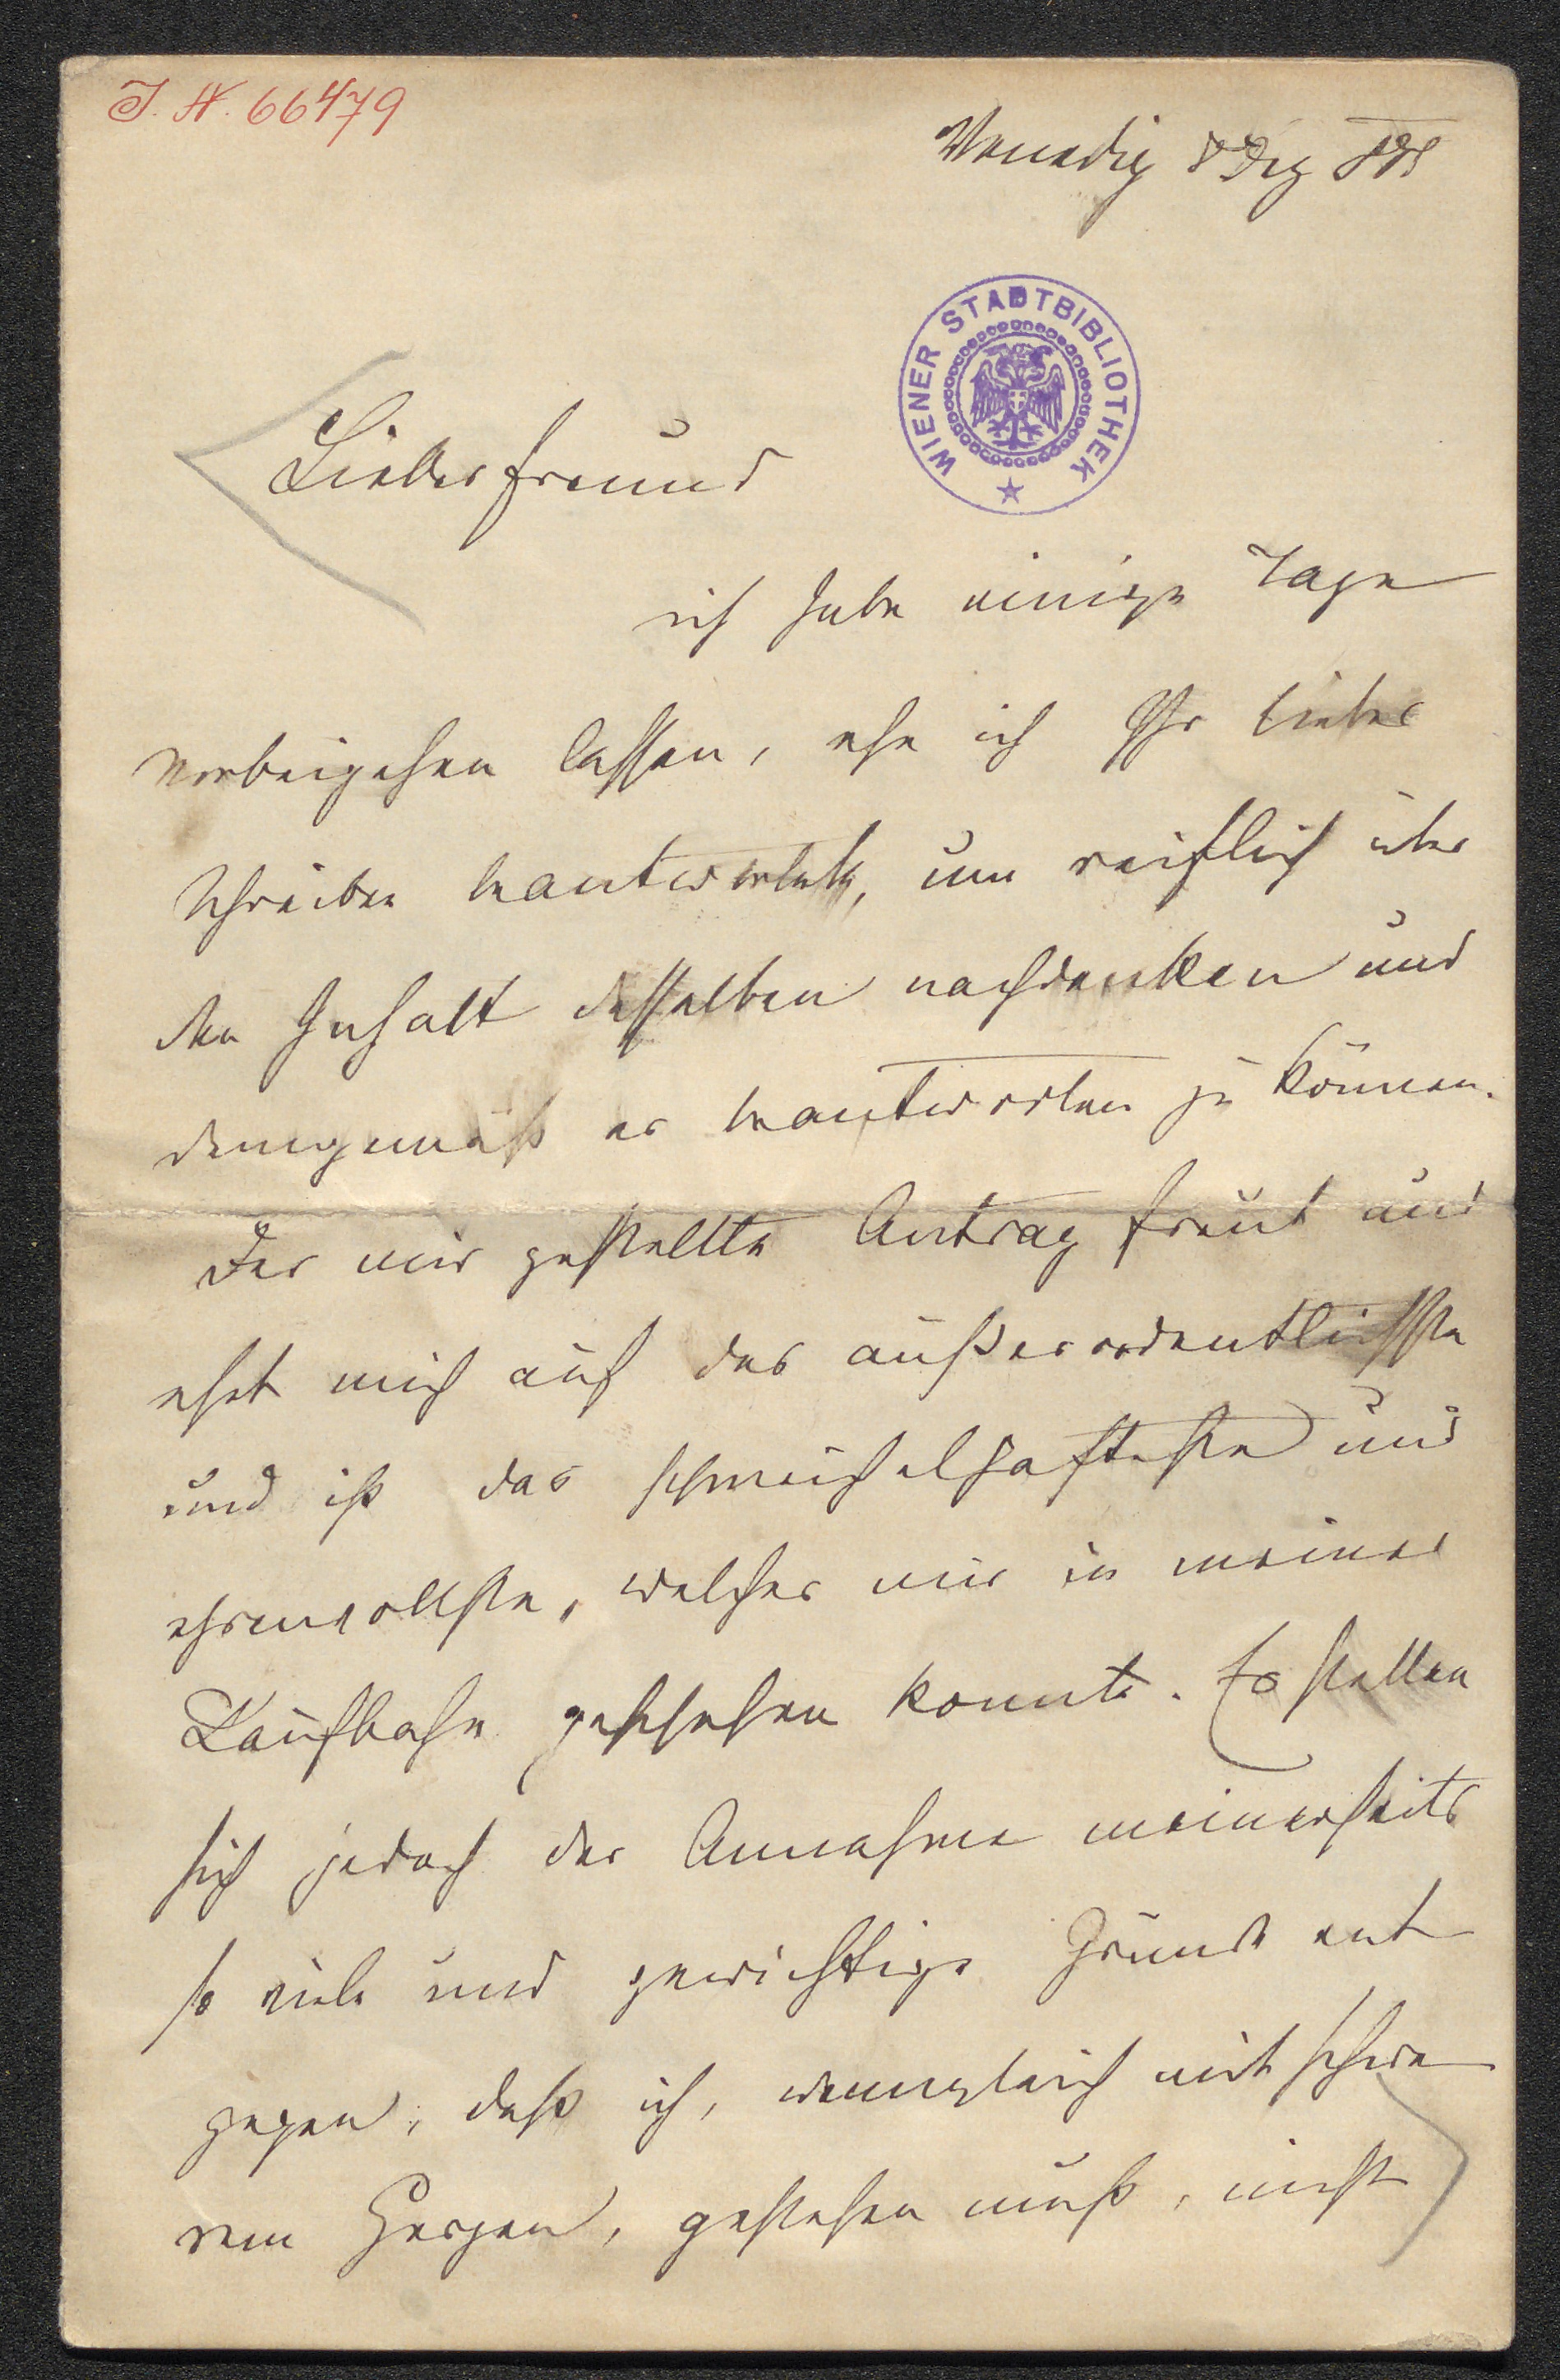 J. N. 66479
Venedig 8 Dez
WIENER STADTBIBLIOTHEK
Lieber Freund
ich habe einige Tage
vorbeigehen lassen, ehe ich Ihr liebes
Schreiben beantwortete, um reiflich über
den Inhalt desselben nachdenken und
demgemäß es beantworten zu können.
Der mir gestellte Antrag freut und
ehrt mich auf das außerordentlichste
und ist das schmeichelhafteste und
ehrenvollste, welches mir in meiner
Laufbahn geschehen konnte. Es stellen
sich jedoch der Annahme meinerseits
so viele und gewichtige Gründe ent
gegen, daß ich, wenngleich mit schwe
rem Herzen, gestehen muß, nicht